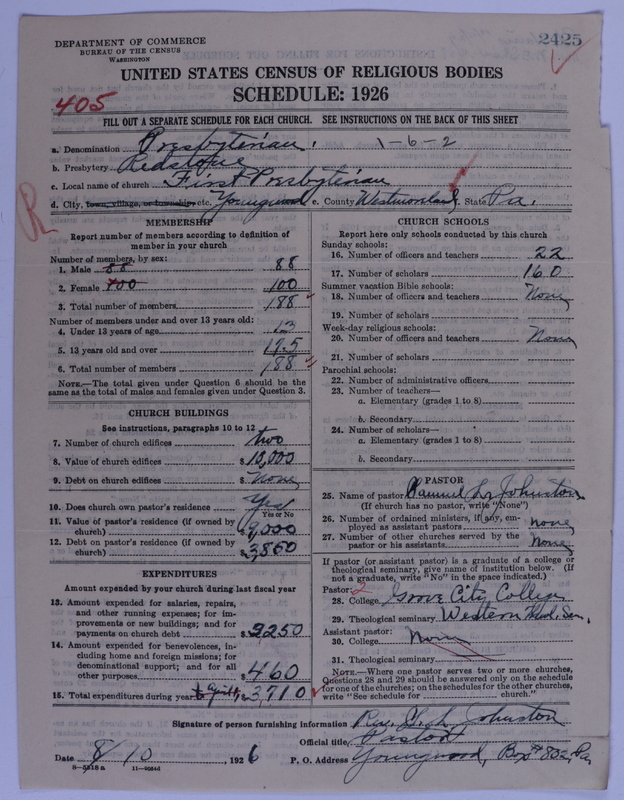 DEPARTMENT OF COMMERCE
BUREAU OF THE CENSUS
WASHINGTON
2425
UNITED STATES CENSUS OF RELIGIOUS BODIES
SCHEDULE: 1926
405
FILL OUT A SEPARATE SCHEDULE FOR EACH CHURCH. SEE INSTRUCTIONS ON THE BACK OF THIS SHEET
a. Denomination Presbyterian. 1-6-2
b. Presbytery Redstone
c. Local name of church First Presbyterian
d. City, town, village, or township, etc. Youngwood e. County Westmoreland State Pa.
R
MEMBERSHIP
Report number of members according to definition of
member in your church
Number of members, by sex:
1. Male 88 88
2. Female 100 100
3. Total number of members 188
Number of members under and over 13 years old:
4. Under 13 years of age 13
5. 13 years old and over 175
6. Total number of members 188
NOTE.—The total given under Question 6 should be the
same as the total of males and females given under Question 3.
CHURCH BUILDINGS
See instructions, paragraphs 10 to 12
7. Number of church edifices two
8. Value of church edifices $10,000
9. Debt on church edifices $None
10. Does church own pastor's residence Yes
Yes or No
11. Value of pastor's residence (if owned by
church) $9,000
12. Debt on pastor's residence (if owned by
church) $3,850
EXPENDITURES
Amount expended by your church during last fiscal year
13. Amount expended for salaries, repairs,
and other running expenses; for im-
provements or new buildings; and for
payments on church debt $2250
14. Amount expended for benevolences, in-
cluding home and foreign missions; for
denominational support; and for all
other purposes $460
15. Total expenditures during year $3,710
CHURCH SCHOOLS
Report here only schools conducted by this church
Sunday schools:
16. Number of officers and teachers 22
17. Number of scholars 160
Summer vacation Bible schools:
18. Number of officers and teachers None
19. Number of scholars
Week-day religious schools:
20. Number of officers and teachers None
21. Number of scholars
Parochial schools:
22. Number of administrative officers
23. Number of teachers—
a. Elementary (grades 1 to 8)
b. Secondary
24. Number of scholars—
a. Elementary (grades 1 to 8)
b. Secondary
PASTOR
25. Name of pastor Samuel L. Johnston
(If church has no pastor, write "None")
26. Number of ordained ministers, if any, em-
ployed as assistant pastors none
27. Number of other churches served by the
pastor or his assistants None
If pastor (or assistant pastor) is a graduate of a college or
theological seminary, give name of institution below. (If
not a graduate, write "No" in the space indicated.)
Pastor: 2
28. College Grove City College
29. Theological seminary Western Theol. Sem.
Assistant pastor:
30. College None
31. Theological seminary
NOTE.—Where one pastor serves two or more churches,
Questions 28 and 29 should be answered only on the schedule
for one of the churches; on the schedules for the other churches,
write "See schedule for church."
Signature of person furnishing information Rev. Johnston
Official title, Pastor
Date 8/10, 1926 P. O. Address Youngwood, Box 832, Pa.
8—5518 a